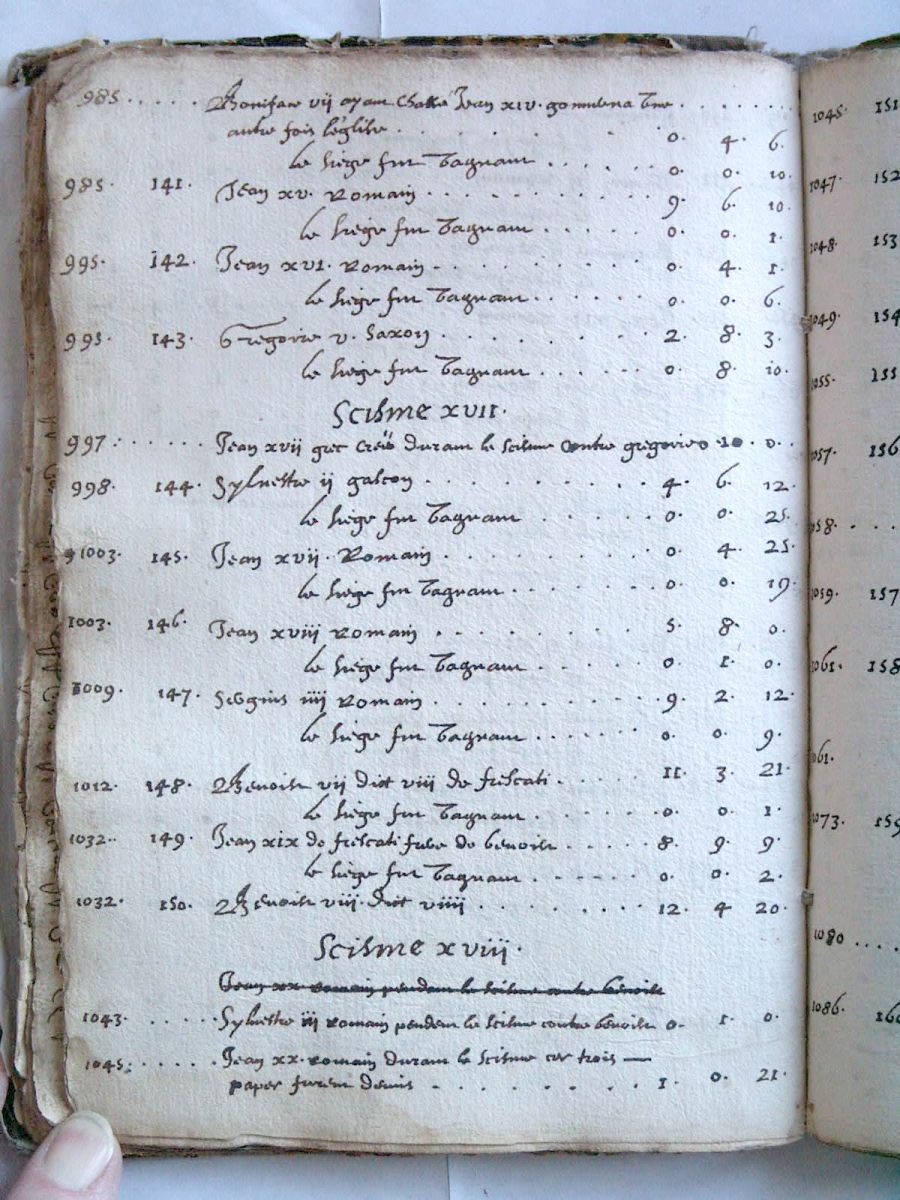 985 . . . . . Boniface vij ayant chassé Jean xiv. gouverna une . . . . . . .
autre fois l'églisse . . . . . . . 0. 4. 6.
le siège fut vaquant . . . . . 0. 0. 10.
985. 141. Jean xv. Romain . . . . . . . . . 9. 6. 10.
le siège fut vaquant . . . . . 0. 0. 1.
995. 142. Jean xvi. Romain . . . . . . . . 0. 4. 1.
le siège fut vaquant . . . . . . 0. 0. 6.
995. 143. Gregoire v. Saxon . . . . . . . . 2. 8. 3.
le siège fut vaquant . . . . . . 0. 8. 10.
Scisme xvii.
997. . . . . . . Jean xvij grec creé durant le scisme contre gregoire 0 10. 0.
998. 144. Sylvestre ij gascon . . . . . . . . 4. 6. 12.
le siège fut vaquant . . . . . 0. 0. 25.
1003. 145. Jean xvij. Romain . . . . . . . . 0. 4. 25.
le siège fut vaquant . . . . . . 0. 0. 19.
1003. 146. Jean xviij Romain . . . . . . . . 5. 8. 0.
le siège fut vaquant . . . . . . 0. 1. 0.
1009. 147. Sergius iiij Romain . . . . . . . . 9. 2. 12.
le siège fut vaquant . . . . . . 0. 0. 9.
1012. 148. Benoist vij dit viij de frescati . . . . . 11. 3. 21.
le siège fut vaquant . . . . . . 0. 0. 1.
1032. 149. Jean xix de frescati frere de benoist . . . . . 8. 9. 9.
le siège fut vaquant . . . . . . 0. 0. 2.
1032. 150. Benoist viij. dict viiij . . . . . . . . 12. 4 20.
Scisme xviij.
Jean xx romain pendent le scisme contre benoist
1043. . . . . Sylvestre iij romain pendent le scisme contre benoist 0. 1. 0.
1045. . . . . . Jean xx. romain durant le scisme cer trois —
papes furent demis . . . . . . . . 1. 0. 21.
1045. 151
1047. 152
1048. 153
1049. 154
1055. 155
1057. 156
1058. . . .
1059. 157
1061. 158
1061.
1073. 159
1080 . . . .
1086. 160